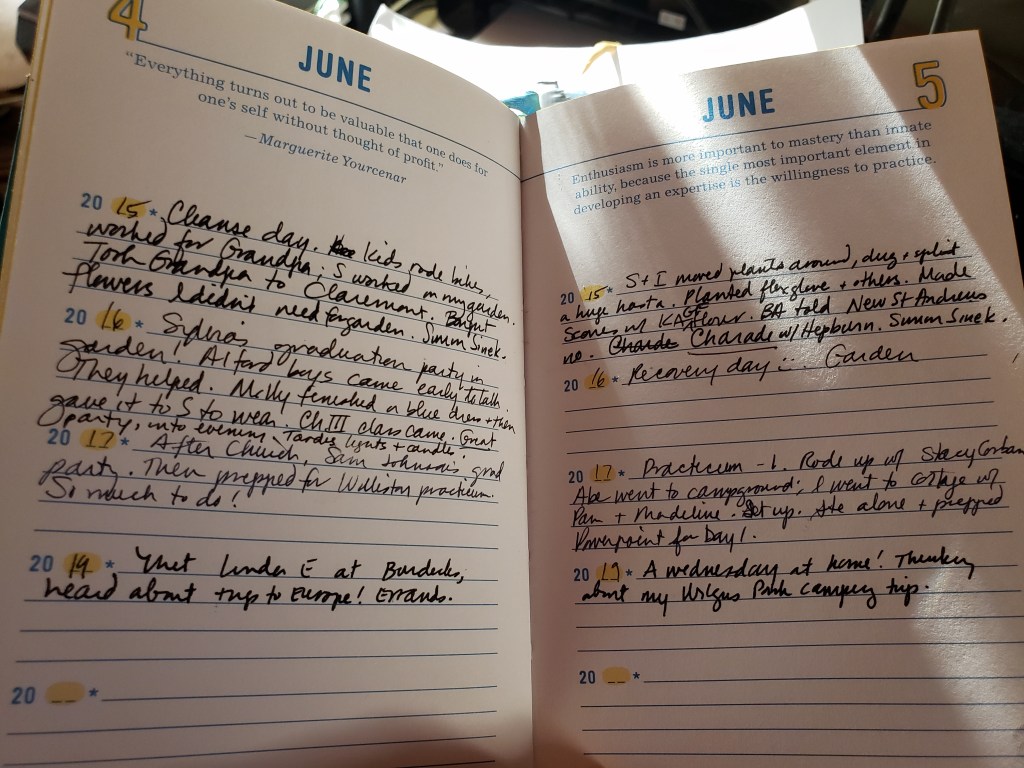 4
JUNE
“Everything turns out to be valuable that one does for
one’s self without thought of profit.”
—Marguerite Yourcenar
20 15 * Cleanse day. kids rode bikes,
worked for Grandpa; S worked on my garden.
Took Grandpa to Claremont. Bought
flowers I didn't need for garden. Simon Sinek.
20 16 * Sylvia's graduation party in
garden! Alford boys came early to talk.
They helped. Molly finished a blue dress + then
gave it to S to wear. Ch III class came. Great
party, into evening. Tardis lights + candles.
20 17 * After Church, Sam Johnson's grad
party. Then prepped for Williston practicum.
So much to do!
20 19 * Met Linda E at Burdicks,
heard about trip to Europe! Errands.
20 __ *
JUNE
5
Enthusiasm is more important to mastery than innate
ability, because the single most important element in
developing an expertise is the willingness to practice.
20 15 * S + I moved plants around, dug + split
a huge hosta. Planted foxglove + others. Made
Scones w/ KA GF flour. BA told New St Andrews
no. Charade w/ Hepburn. Simon Sinek.
20 16 * Recovery day Garden
20 17 * Practicum - 1. Rode up w/ Stacy
Abe went to campground; I went to w/
Pam + Madeline. Set up. Ate alone + prepped
Powerpoint for Day 1.
20 19 * A wednesday at home! Thinking
about my camping trip.
20 __ *